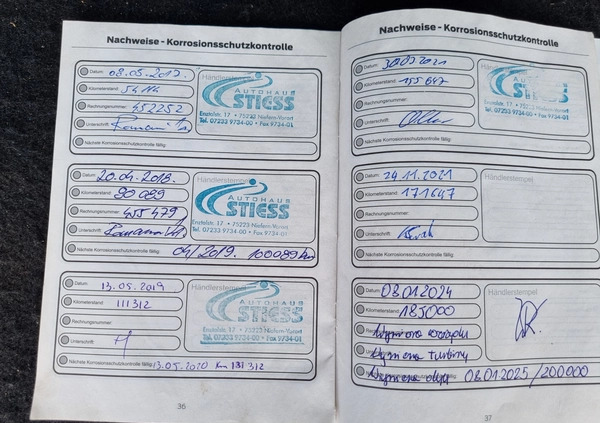 Nachweise - Korrosionsschutzkontrolle
Datum: 08.05.2017.
Kilometerstand: 54114
Rechnungsnummer: 452252
Unterschrift:
Nächste Korrosionsschutzkontrolle fällig:
Händlerstempel
AUTOHAUS
STIESS
Enztalstr. 17 • 75223 Niefern-Vorort
Tel. 07233 9734-00 • Fax 9734-01
Datum: 20.04.2018.
Kilometerstand: 90089
Rechnungsnummer: 455479
Unterschrift:
Nächste Korrosionsschutzkontrolle fällig: 04/2019. 100089 km
Händlerstempel
AUTOHAUS
STIESS
Enztalstr. 17 • 75223 Niefern-Vorort
Tel. 07233 9734-00 • Fax 9734-01
Datum: 13.05.2019
Kilometerstand: 111312
Rechnungsnummer:
Unterschrift:
Nächste Korrosionsschutzkontrolle fällig: 13.05.2020 km 131312
Händlerstempel
AUTOHAUS
STIESS
Enztalstr. 17 • 75223 Niefern-Vorort
Tel. 07233 9734-00 • Fax 9734-01
36
Nachweise - Korrosionsschutzkontrolle
Datum: 30.03.2021
Kilometerstand: 155647
Rechnungsnummer:
Unterschrift:
Nächste Korrosionsschutzkontrolle fällig:
AUTOHAUS
STIESS
Enztalstr. 17 • 75223 Niefern-Vorort
Tel. 07233 9734-00 • Fax 9734-01
Datum: 24.11.2021
Kilometerstand: 171647
Rechnungsnummer:
Unterschrift:
Nächste Korrosionsschutzkontrolle fällig:
Händlerstempel
Datum: 08.01.2024
Kilometerstand: 185000
Wymiana rozrządu
Wymiana turbiny
Wymiana oleju 08.01.2025/200000
Händlerstempel
37